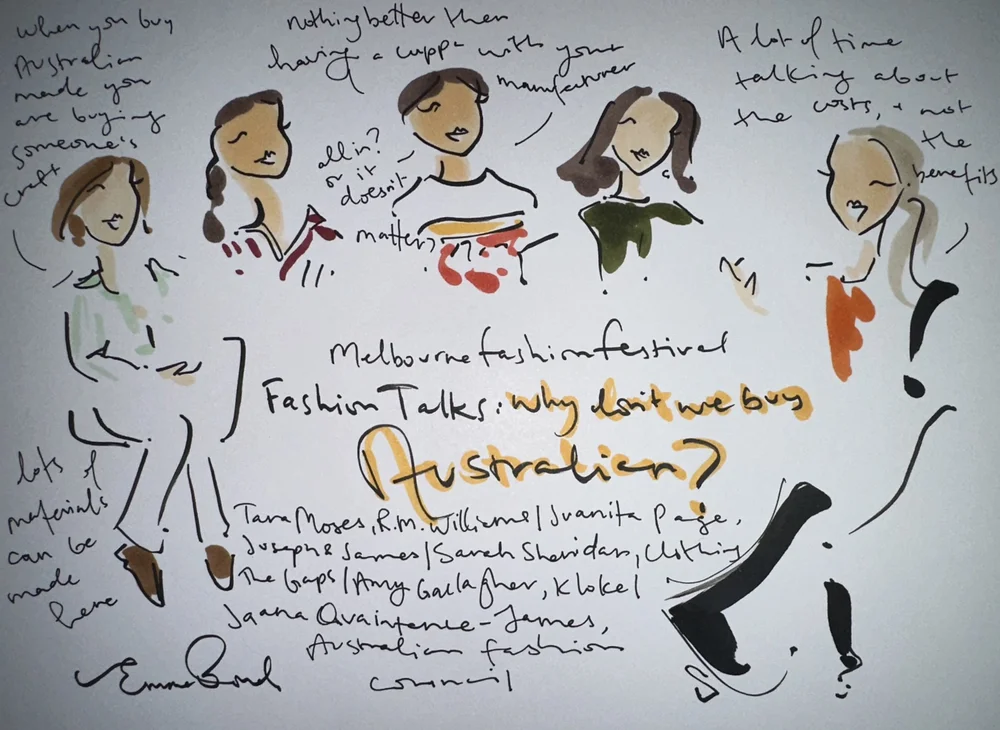 when you buy
Australian
made you
are buying
someone's
craft
nothing better then
having a cuppa with your
manufacturer
all in?
or it
doesn't
matter?
A lot of time
talking about
the costs, + not
the
benefits
Melbourne fashion festival
Fashion Talks: why don't we buy
Australian?
lots of
materials
can be
made
here
Tara Moses, R.M. Williams / Juanita Page,
Joseph & James / Sarah Sheridan, Clothing
The Gaps / Amy Gallagher, Kloke /
Jaana Quaintance-James,
Australian fashion
council